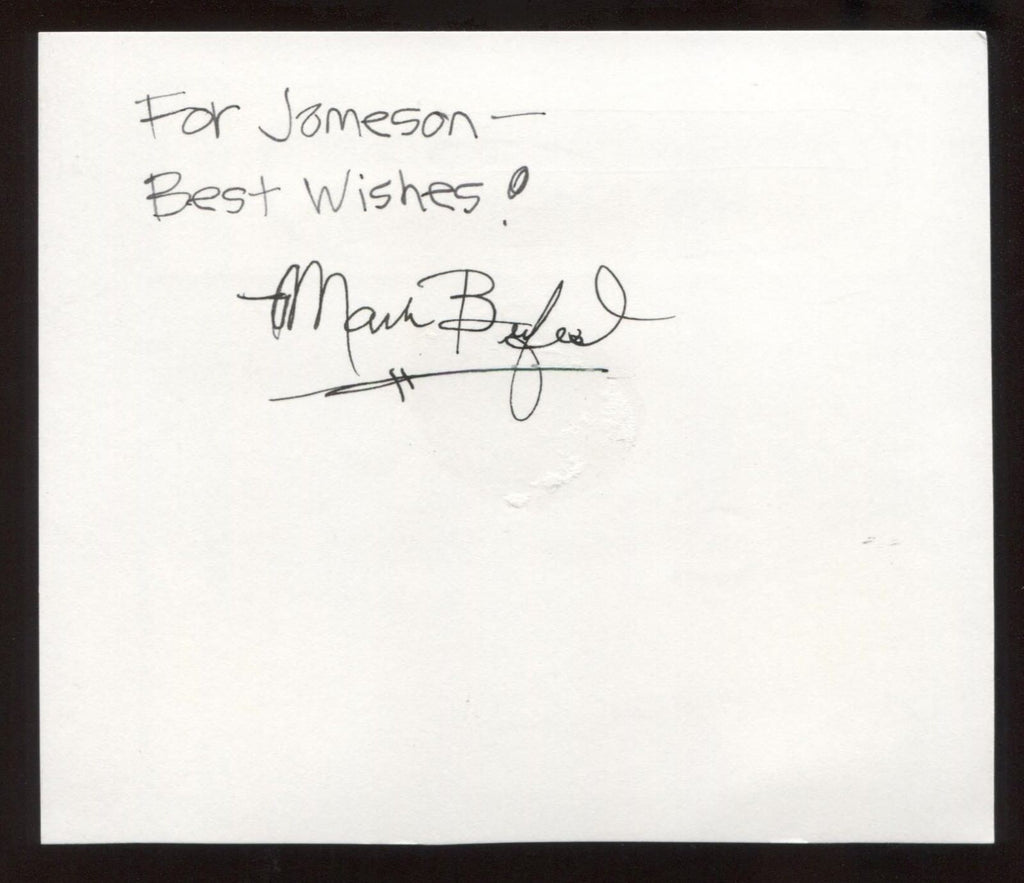 For Jameson —
Best Wishes!
Mark